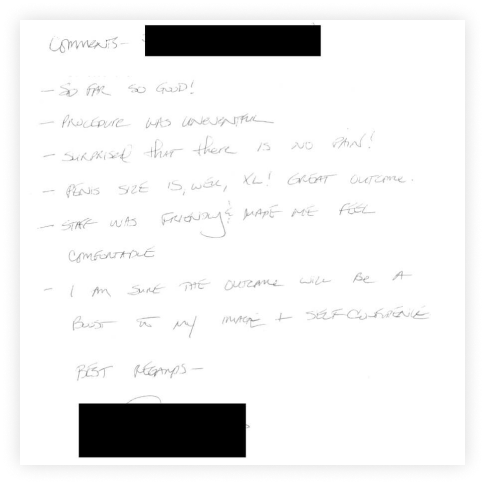 COMMENTS-
- SO FAR SO GOOD!
- PROCEDURE WAS UNEVENTFUL
- SURPRISED that there IS NO PAIN!
- PENIS SIZE IS, WELL, XL! GREAT OUTCOME.
- STAFF WAS FRIENDLY & MADE ME FEEL
COMFORTABLE
- I AM SURE THE OUTCOME WILL BE A
BOOST TO MY IMAGE + SELF CONFIDENCE
BEST REGARDS-